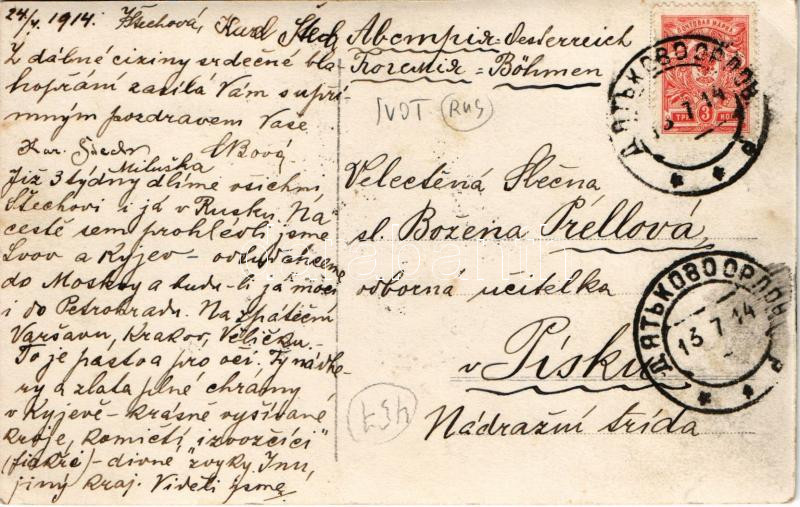 24/7. 1914. Štechová, Karel Štech
Z dálné ciziny srdečné bla
hopřání zasílá Vám s upří
mným pozdravem Vaše
Kar. Bová
Miluška
Již 3 týdny dlíme všichni
Štechovi i já v Rusku. Na
cestě sem prohlédli jsme
Lvov a Kyjev - odtud
do Moskvy a budu-li já moci
i do Petrohradu. Na zpáteční
Varšavu, Krakov, Veličku.
To je pastva pro oči. Ty nádhe-
ry a zlata plné chrámy
v Kyjevě - krásné vyšívané
kroje, komičtí "izvozčíci"
(fiakři) - divné zvyky. Inu,
jiný kraj. Viděli jsme
Австрия = Oesterreich
Богемия = Böhmen
IVOT RUS
ПОЧТОВАЯ МАРКА
ТРИ 3 КОП
ДЯТЬКОВО ОРЛОВ. Р
13 7 14
Velectěná Slečna
sl Božena Prellová,
odborná učitelka
v Písku
Nádražní třída
ДЯТЬКОВО ОРЛОВ. Р
13 7 14
437